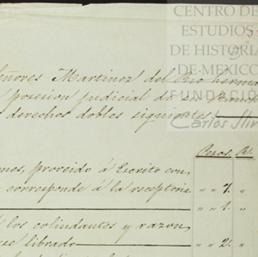 CENTRO DE
ESTUDIOS
DE HISTORIA
DE MEXICO
FUNDACIÓN
Carlos Slim
Señores Martinez del Rio herman
posesion judicial de
derechos dobles siguientes
Pesos. Rs.
proveido á Escrito con
corresponde á la receptoria " " 7.
" " 1.
los colindantes y razon
librado " " 2.